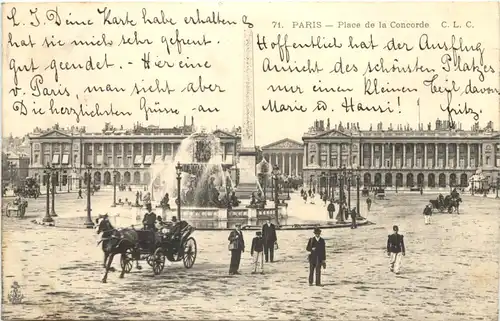 L. J. Deine Karte habe erhalten &
hat sie mich sehr gefreut.
gut geendet. - Hier eine
v. Paris, man sieht aber
Die herzlichsten Grüsse - an
71. PARIS — Place de la Concorde C. L. C.
Hoffentlich hat der Ausflug
Ansicht des schönsten Platzes
nur einen kleinen Teil davon
Marie u. Hansi! Fritz.